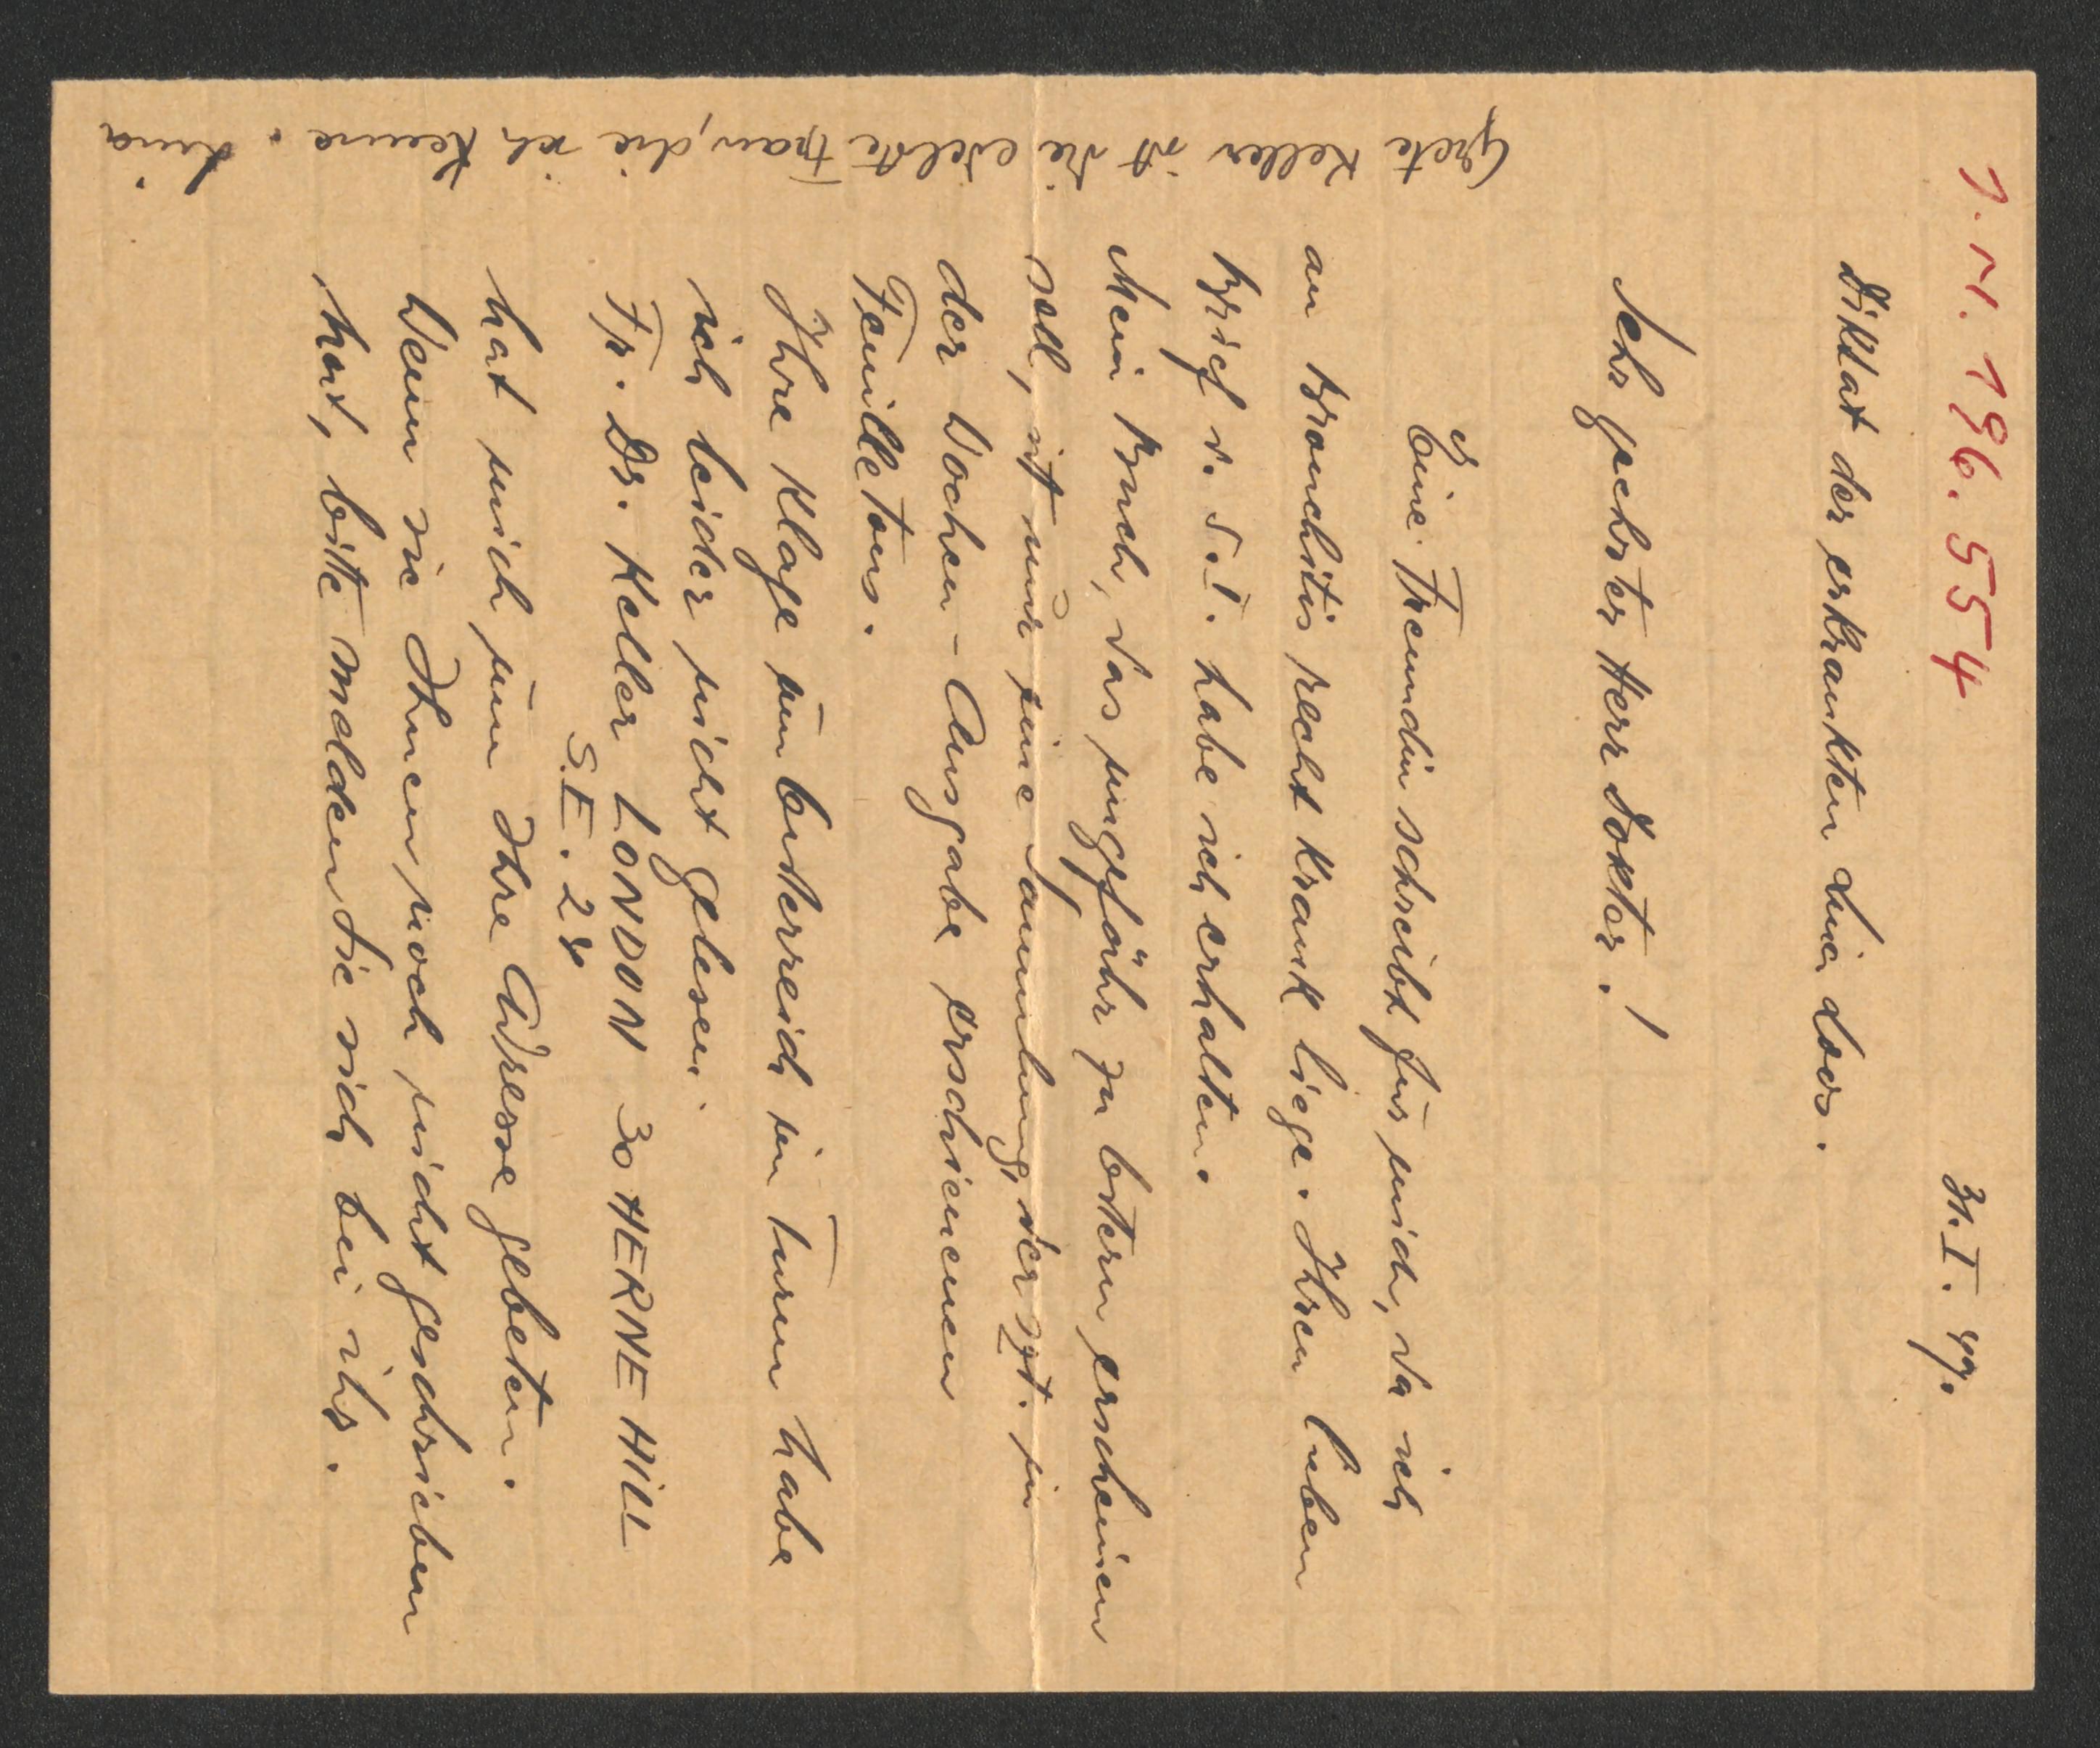 J. N. 196.554
31. I. 49.
Diktat der erkrankten Lina Loos.
Sehr geehrter Herr Doktor!
Eine Freundin schreibt für mich, da ich
an Bronchitis recht krank liege. Ihren lieben
Brief v. 5. I. habe ich erhalten.
Mein Buch, das ungefähr zu Ostern erscheinen
soll, ist nur eine Sammlung der szt. in
der Wochen-Ausgabe erschienenen
Feuilletons.
Ihre Klage um Österreich im Turm habe
ich leider nicht gelesen.
Fr. Dr. Keller LONDON 30 HERNE HILL
S.E. 24
hat mich um Ihre Adresse gebeten.
Wenn sie Ihnen noch nicht geschrieben
hat, bitte melden Sie sich bei ihr.
Grete Keller ist die edelste Frau, die ich kenne. Lina